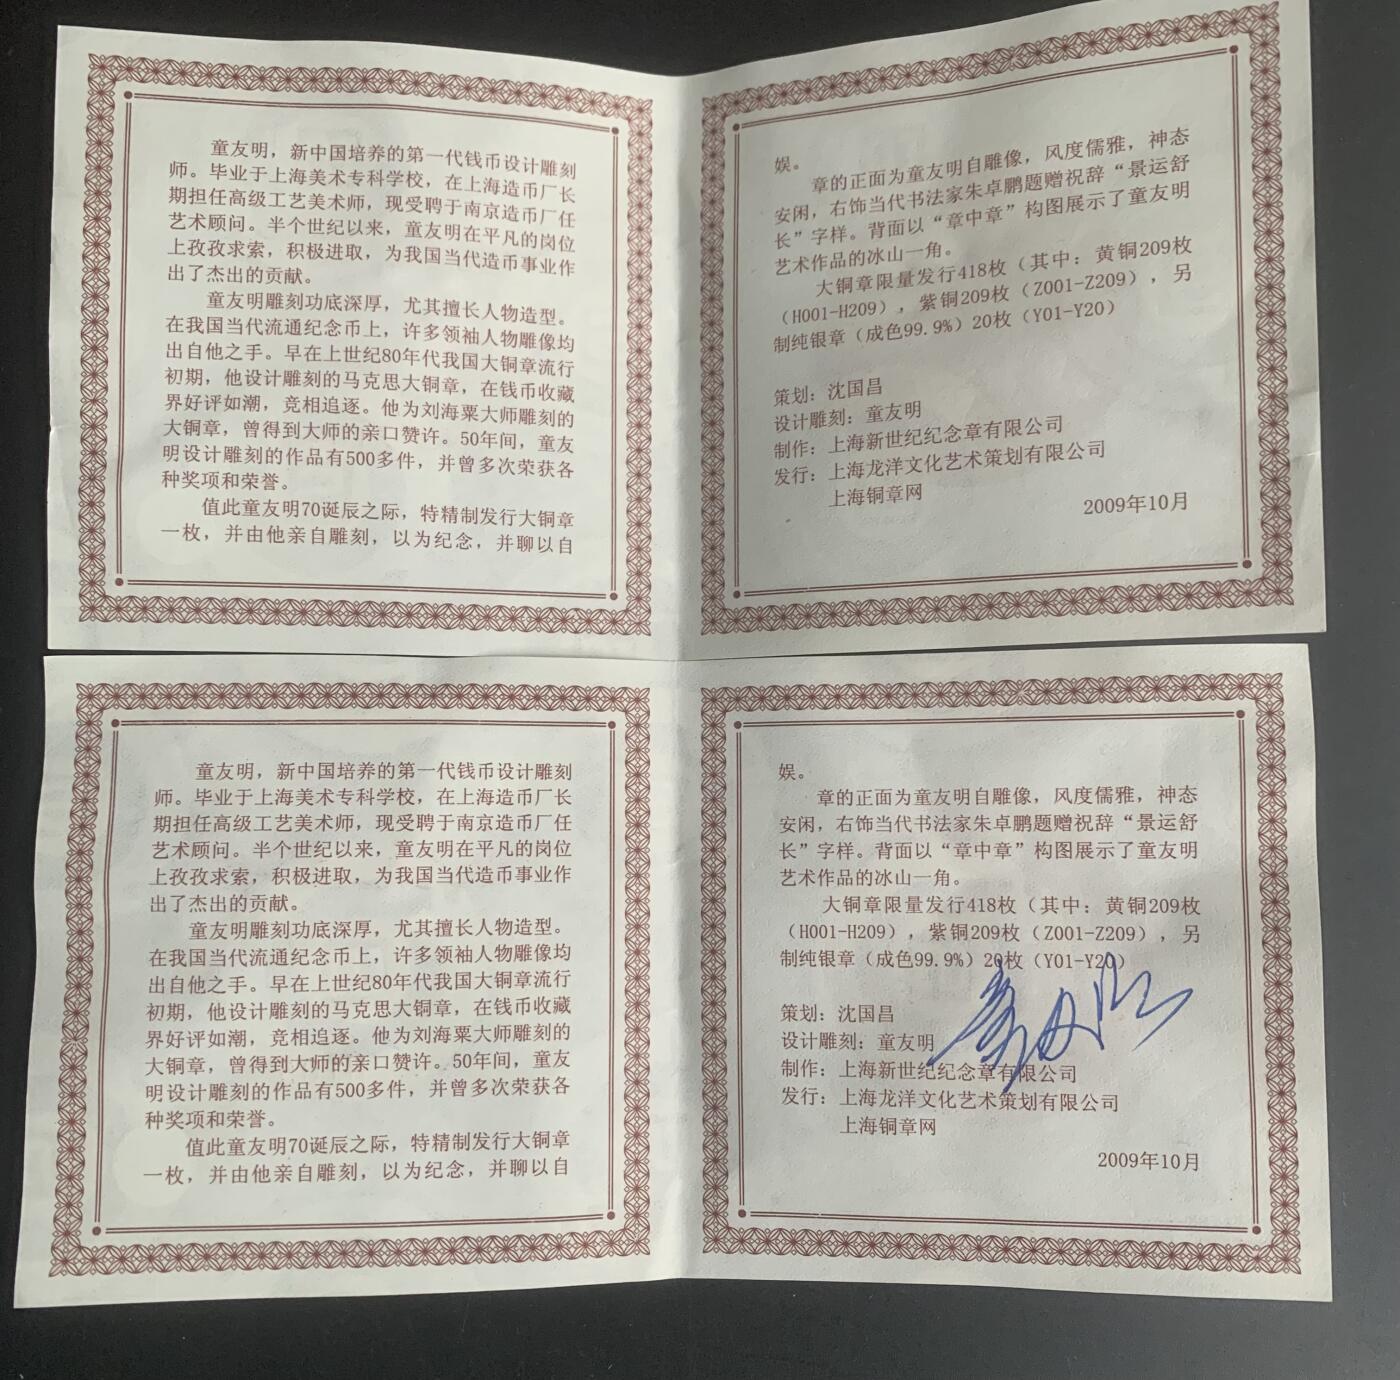 童友明，新中国培养的第一代钱币设计雕刻
师。毕业于上海美术专科学校，在上海造币厂长
期担任高级工艺美术师，现受聘于南京造币厂任
艺术顾问。半个世纪以来，童友明在平凡的岗位
上孜孜求索，积极进取，为我国当代造币事业作
出了杰出的贡献。
童友明雕刻功底深厚，尤其擅长人物造型。
在我国当代流通纪念币上，许多领袖人物雕像均
出自他之手。早在上世纪80年代我国大铜章流行
初期，他设计雕刻的马克思大铜章，在钱币收藏
界好评如潮，竞相追逐。他为刘海粟大师雕刻的
大铜章，曾得到大师的亲口赞许。50年间，童友
明设计雕刻的作品有500多件，并曾多次荣获各
种奖项和荣誉。
值此童友明70诞辰之际，特精制发行大铜章
一枚，并由他亲自雕刻，以为纪念，并聊以自
娱。
章的正面为童友明自雕像，风度儒雅，神态
安闲，右饰当代书法家朱卓鹏题赠祝辞“景运舒
长”字样。背面以“章中章”构图展示了童友明
艺术作品的冰山一角。
大铜章限量发行418枚（其中：黄铜209枚
（H001-H209），紫铜209枚（Z001-Z209），另
制纯银章（成色99.9%）20枚（Y01-Y20）
策划：沈国昌
设计雕刻：童友明
制作：上海新世纪纪念章有限公司
发行：上海龙洋文化艺术策划有限公司
上海铜章网
2009年10月
童友明，新中国培养的第一代钱币设计雕刻
师。毕业于上海美术专科学校，在上海造币厂长
期担任高级工艺美术师，现受聘于南京造币厂任
艺术顾问。半个世纪以来，童友明在平凡的岗位
上孜孜求索，积极进取，为我国当代造币事业作
出了杰出的贡献。
童友明雕刻功底深厚，尤其擅长人物造型。
在我国当代流通纪念币上，许多领袖人物雕像均
出自他之手。早在上世纪80年代我国大铜章流行
初期，他设计雕刻的马克思大铜章，在钱币收藏
界好评如潮，竞相追逐。他为刘海粟大师雕刻的
大铜章，曾得到大师的亲口赞许。50年间，童友
明设计雕刻的作品有500多件，并曾多次荣获各
种奖项和荣誉。
值此童友明70诞辰之际，特精制发行大铜章
一枚，并由他亲自雕刻，以为纪念，并聊以自
娱。
章的正面为童友明自雕像，风度儒雅，神态
安闲，右饰当代书法家朱卓鹏题赠祝辞“景运舒
长”字样。背面以“章中章”构图展示了童友明
艺术作品的冰山一角。
大铜章限量发行418枚（其中：黄铜209枚
（H001-H209），紫铜209枚（Z001-Z209），另
制纯银章（成色99.9%）20枚（Y01-Y20）
童友明
策划：沈国昌
设计雕刻：童友明
制作：上海新世纪纪念章有限公司
发行：上海龙洋文化艺术策划有限公司
上海铜章网
2009年10月